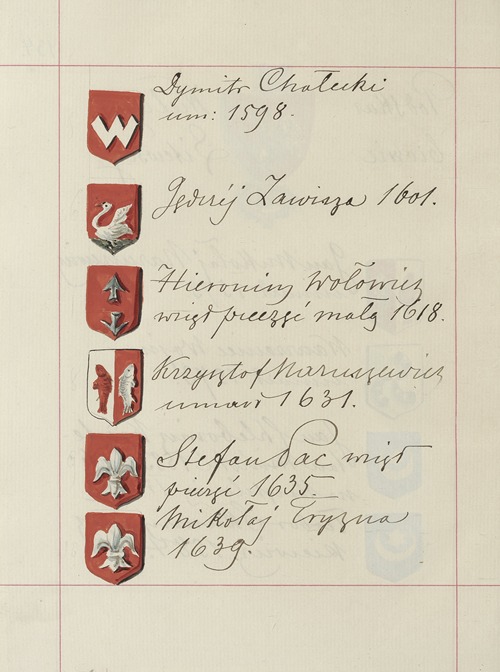 Dymitr Chałecki
um: 1598.
Jędrzéj Zawisza 1601.
Hieronim Wołowicz
wziął pieczęć małą 1618.
Krzysztof Naruszewicz
umarł 1631.
Stefan Pac wziął
pieczęć 1635.
Mikołaj Tryzna
1639.